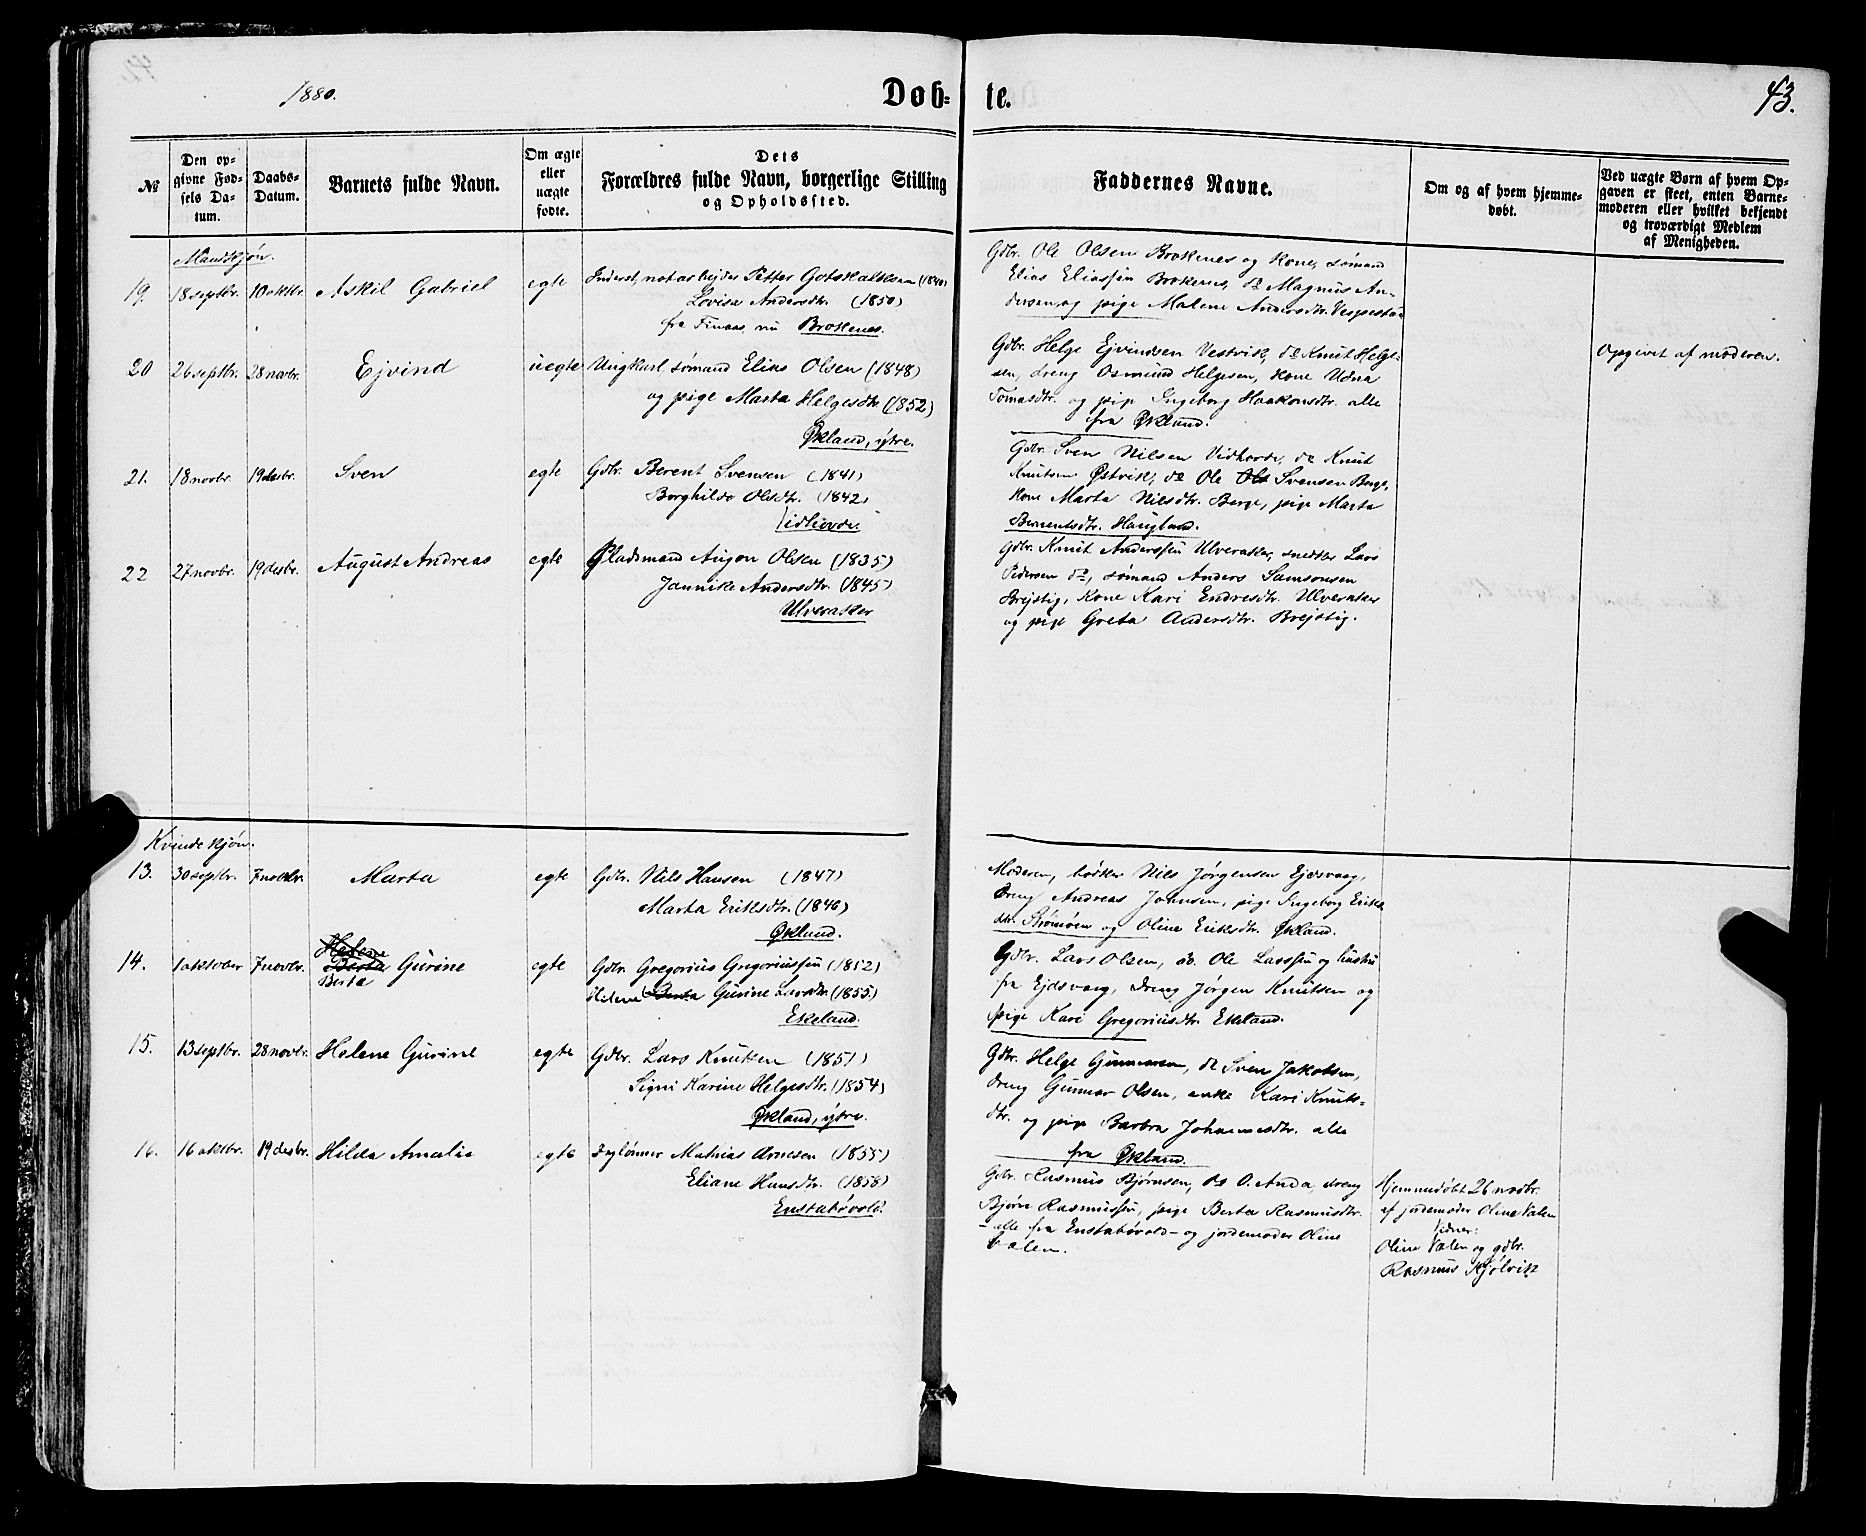 1880.
Døb-te.
43.
№
Den op-
givne Fød-
sels Da-
tum.
Daabs-
Datum.
Barnets fulde Navn.
Om ægte
eller
uægte
fødte.
Dets
Forældres fulde Navn, borgerlige Stilling
og Opholdssted.
Faddernes Navne.
Om og af hvem hjemme-
døbt.
Ved uægte Børn af hvem Op-
gaven er skeet, enten Barne-
moderen eller hvilket bekjendt
og troværdigt Medlem
af Menigheden.
Mandkjøn.
19. 18 septbr. 10 oktbr. Askil Gabriel egte Inderst, notarbejder Petter Gotskalksen (1840)
Lovise Andersdtr. (1850)
fra Finaas, nu Brokenes.
Gdbr. Ole Olsen Brokenes og kone, sømand
Elias Eliassen Brokenes, do Magnus An-
dersen og pige Malene Andersdtr. Vespestad
20 26 septbr. 28 novbr. Ejvind uegte Ungkarl sømand Elias Olsen (1848)
og pige Marta Helgesdtr. (1852)
Økland, ytre.
Gdbr. Helge Ejvindsen Vestvik, do Knut Helge-
sen, dreng Osmund Helgesen, kone Udna
Tomasdtr. og pige Ingeborg Haakonsdtr. alle
fra Økland.
Opgivet af moderen.
21. 18 novbr. 19 desbr. Sven egte Gdbr. Berent Svensen (1841)
Borghilde Olsdtr. (1842)
Vidhovde.
Gdbr. Sven Nilsen Vidhovde, do Knut
Knutsen Østvik, do Ole Ols Svensen Berge,
kone Marta Nilsdtr. Berge, pige Marta
Berentsdtr. Haugland.
22 27 novbr. 19 desbr. August Andreas egte Pladsmand Augon Olsen (1835)
Jannike Andersdtr. (1845)
Ulveraker
Gdbr. Knut Anderssen Ulveraker, snedker Lars
Pedersen do, sømand Anders Samsonsen
Brejstig, kone Kari Endresdtr. Ulveraker
og pige Greta Andersdtr. Brejstig.
Kvindekjøn.
13. 30 septbr. 7 novbr. Marta egte Gdbr. Nils Hansen (1847)
Marta Eriksdtr. (1846)
Økland.
Moderen, bødker Nils Jørgensen Ejdsvaag,
dreng Andreas Johnsen, pige Ingeborg Eriks-
dtr. Strømøen og Oline Eriksdtr. Økland.
14. 1 oktober 7 novbr. Helene
Berta Gurine
Berta
egte Gdbr. Gregorius Gregoriussen (1852)
Helene Berta Gurine Larsdtr. (1855)
Ekeland.
Gdbr. Lars Olsen, do. Ole Larssen og hustru
fra Ejdsvaag, dreng Jørgen Knutsen og
pige Kari Gregoriusdtr. Ekeland.
15. 13 septbr. 28 novbr. Helene Gurine egte Gdbr. Lars Knutsen (1851)
Signi Karine Helgesdtr. (1854)
Økland, ytre.
Gdbr. Helge Gunnarsen, do Sven Jakobsen,
dreng Gunnar Olsen, enke Kari Knuts-
dtr. og pige Barbra Johannesdtr. alle
fra Økland.
16. 16 oktbr. 19 desbr. Hilda Amalie egte Inglønner Mathias Arnesen (1855)
Eliane Hansdtr. (1858)
Enstabøvold.
Gdbr. Rasmus Bjørnsen, do O. Anda, dreng
Bjørn Rasmussen, pige Berta Rasmusdtr.
- alle fra Enstabøvold - og jordemoder Oline
Valen.
Hjemmedøbt 26 novbr.
af jordemoder Oline Valen
Vidner:
Oline Valen og gdbr.
Rasmus Kjølvik